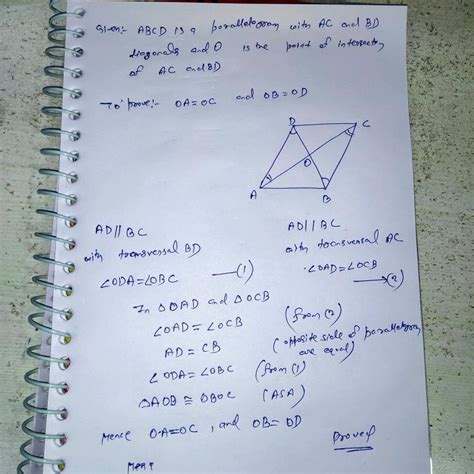 Given:- ABCD is a parallelogram with AC and BD
diagonals and O is the point of intersection
of AC and BD
To prove:- OA=OC and OB=OD
D C
O
A B
AD//BC
with transversal BD
∠ODA=∠OBC —(1)
AD//BC
with transversal AC
∠OAD=∠OCB
—(2)
In ΔOAD and ΔOCB
∠OAD=∠OCB (from (2)
AD = CB (opposite side of parallelogram
are equal)
∠ODA=∠OBC (from (1)
ΔAOB ≅ OBOC (ASA)
Hence OA=OC, and OB=OD
Proved